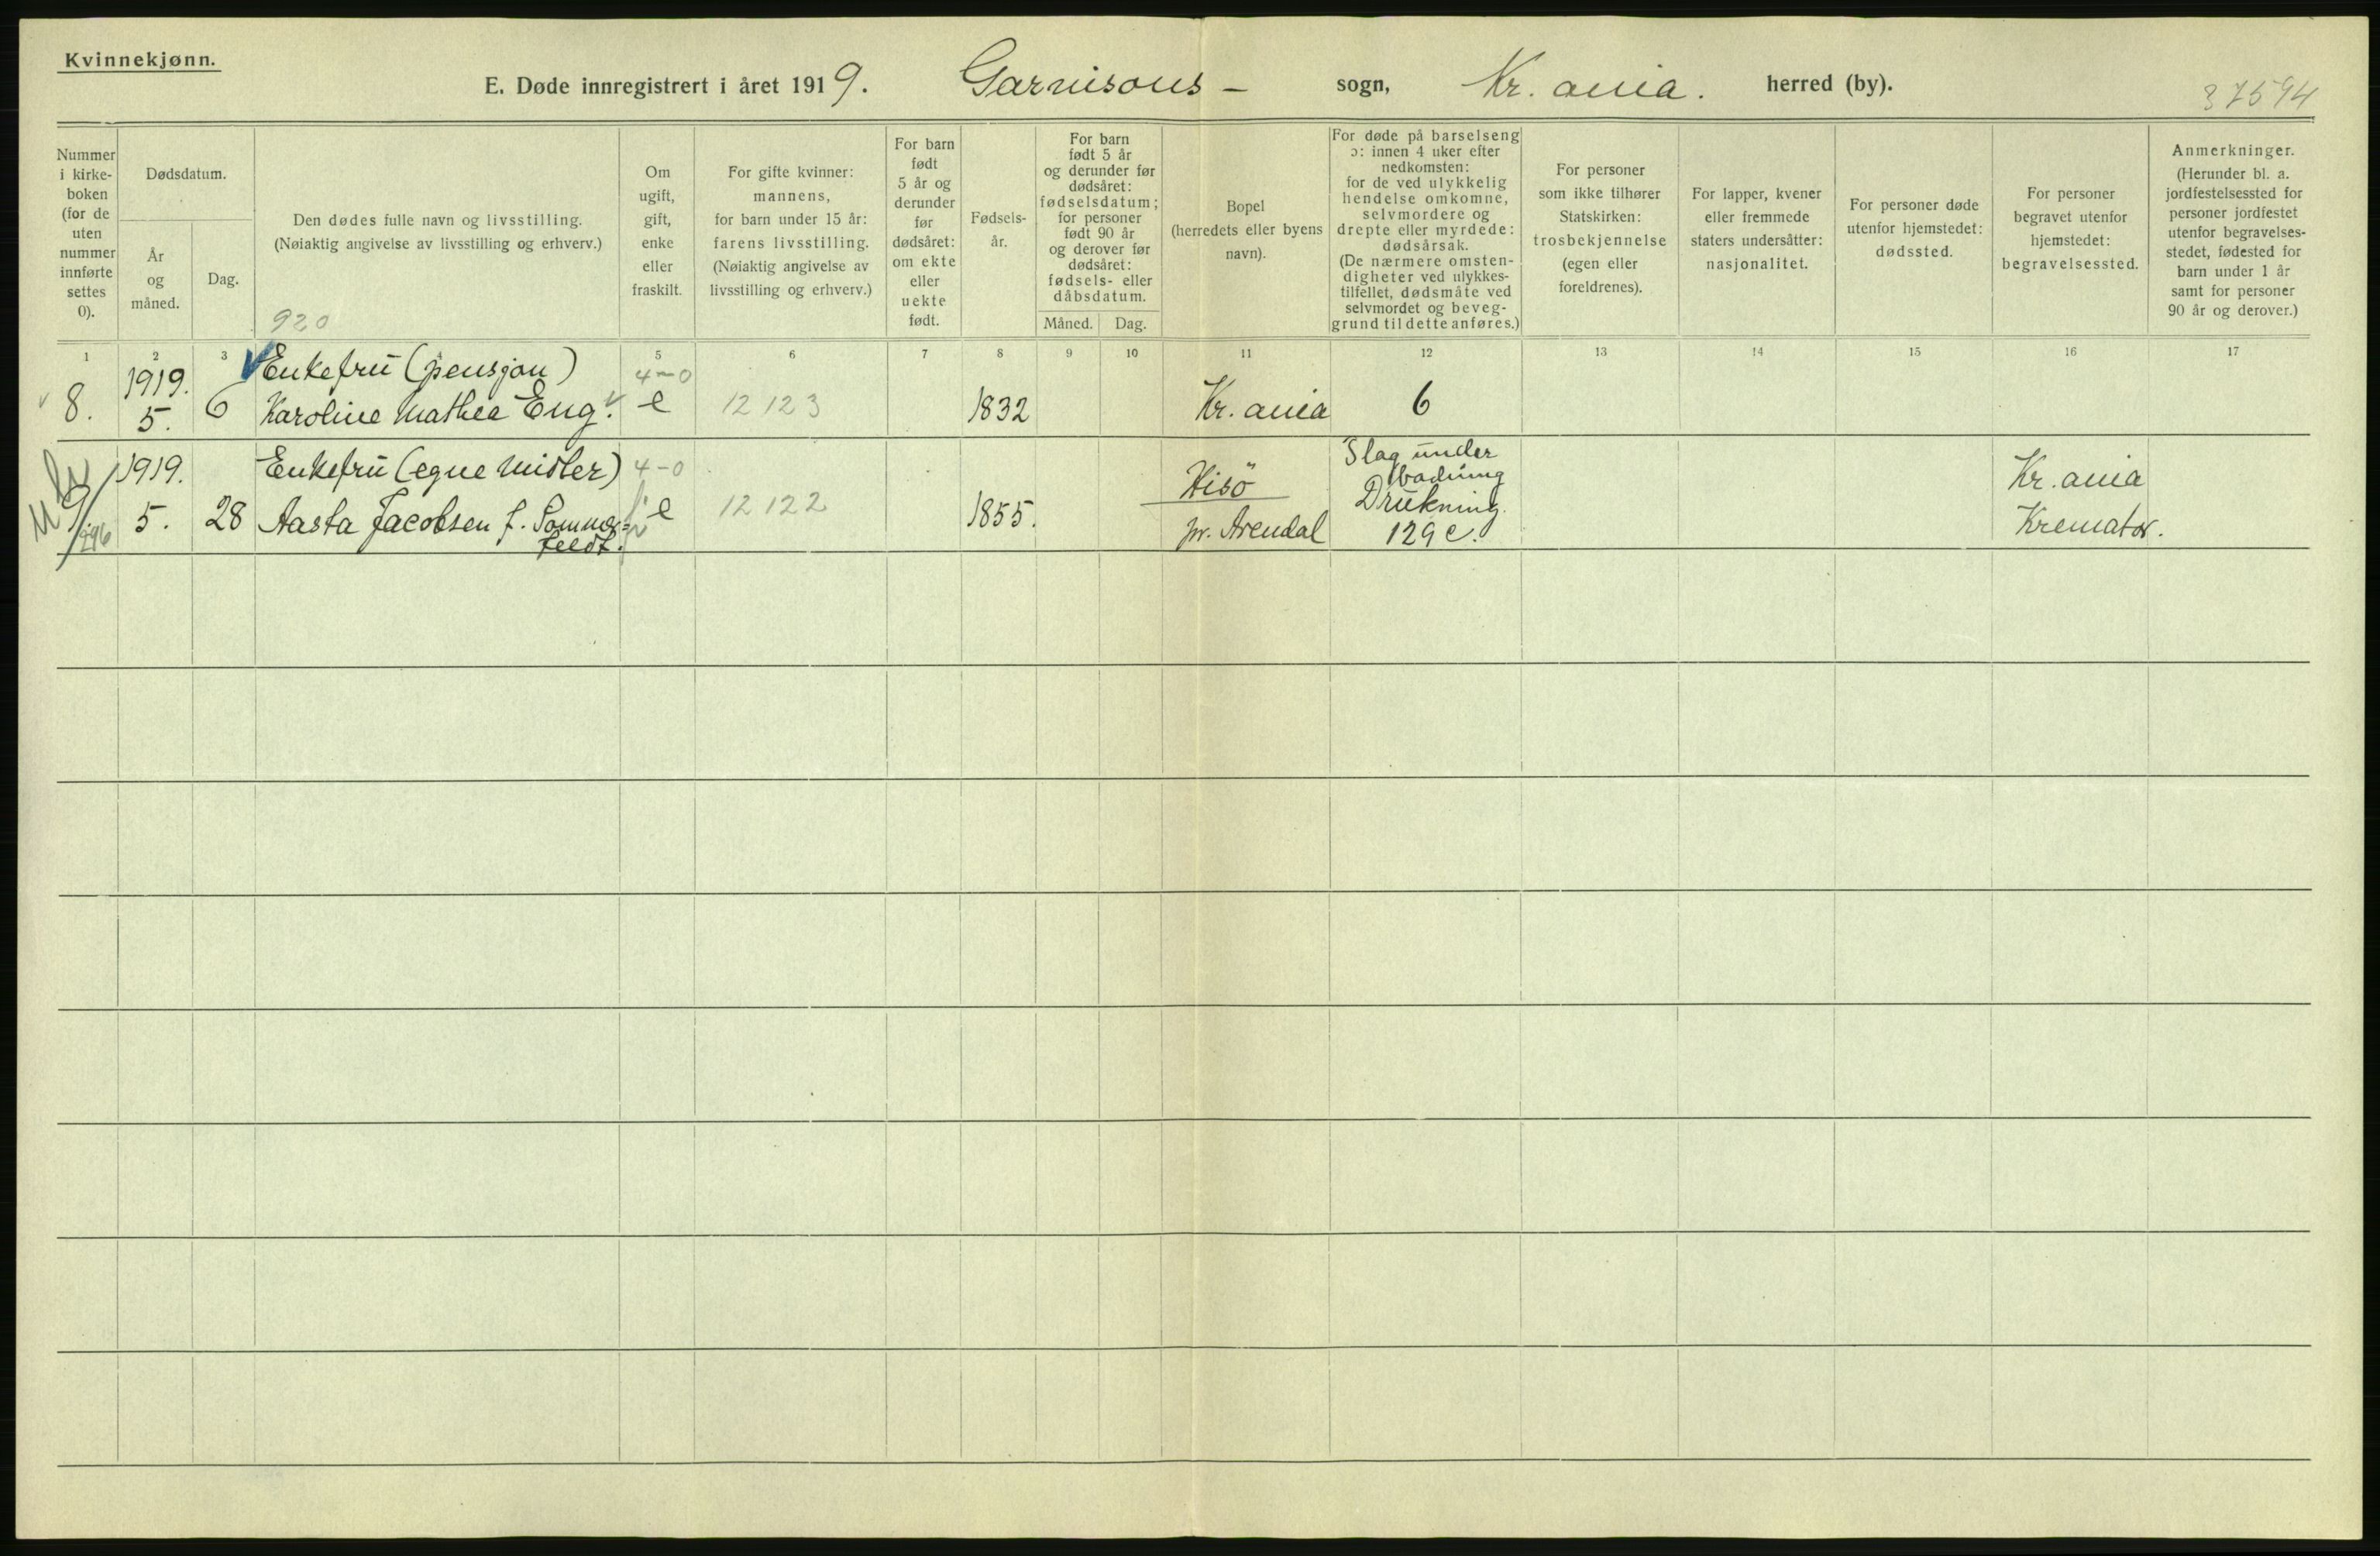 Kvinnekjønn.
E. Døde innregistrert i året 1919. Garnisons- sogn, Kr.ania. herred (by).
37594
Nummer
i kirke-
boken
(for de
uten
nummer
innførte
settes
0).
Dødsdatum.
År
og
måned.
Dag.
Den dødes fulle navn og livsstilling.
(Nøiaktig angivelse av livsstilling og erhverv.)
920
Om
ugift,
gift,
enke
eller
fraskilt.
For gifte kvinner:
mannens,
for barn under 15 år:
farens livsstilling.
(Nøiaktig angivelse av
livsstilling og erhverv.)
For barn
født
5 år og
derunder
før
dødsåret:
om ekte
eller
uekte
født.
Fødsels-
år.
For barn
født 5 år
og derunder før
dødsåret:
fødselsdatum;
for personer
født 90 år
og derover før
dødsåret:
fødsels- eller
dåbsdatum.
Måned. Dag.
Bopel
(herredets eller byens
navn).
For døde på barselseng
ɔ: innen 4 uker efter
nedkomsten:
for de ved ulykkelig
hendelse omkomne,
selvmordere og
drepte eller myrdede:
dødsårsak.
(De nærmere omsten-
digheter ved ulykkes-
tilfellet, dødsmåte ved
selvmordet og beveg-
grund til dette anføres.)
For personer
som ikke tilhører
Statskirken:
trosbekjennelse
(egen eller
foreldrenes).
For lapper, kvener
eller fremmede
staters undersåtter:
nasjonalitet.
For personer døde
utenfor hjemstedet:
dødssted.
For personer
begravet utenfor
hjemstedet:
begravelsessted.
Anmerkninger.
(Herunder bl. a.
jordfestelsessted for
personer jordfestet
utenfor begravelses-
stedet, fødested for
barn under 1 år
samt for personer
90 år og derover.)
1 2 3 5 6 7 8 9 10 11 12 13 14 15 16 17
1919. Enkefrü (pensjon) 4-0
8. 5. 6 Karoline Mathea Eng. e 12 123 1832 Kr. ania 6
1919. Enkefrü (egne midler) 4-0 Hisö Slag ünder Kr. ania
badning
9 5. 28 Aasta Jacobsen f. Sommer- e 12 122 1855. pr. Arendal Drukning. Kremator.
feldt. 129 c.
296